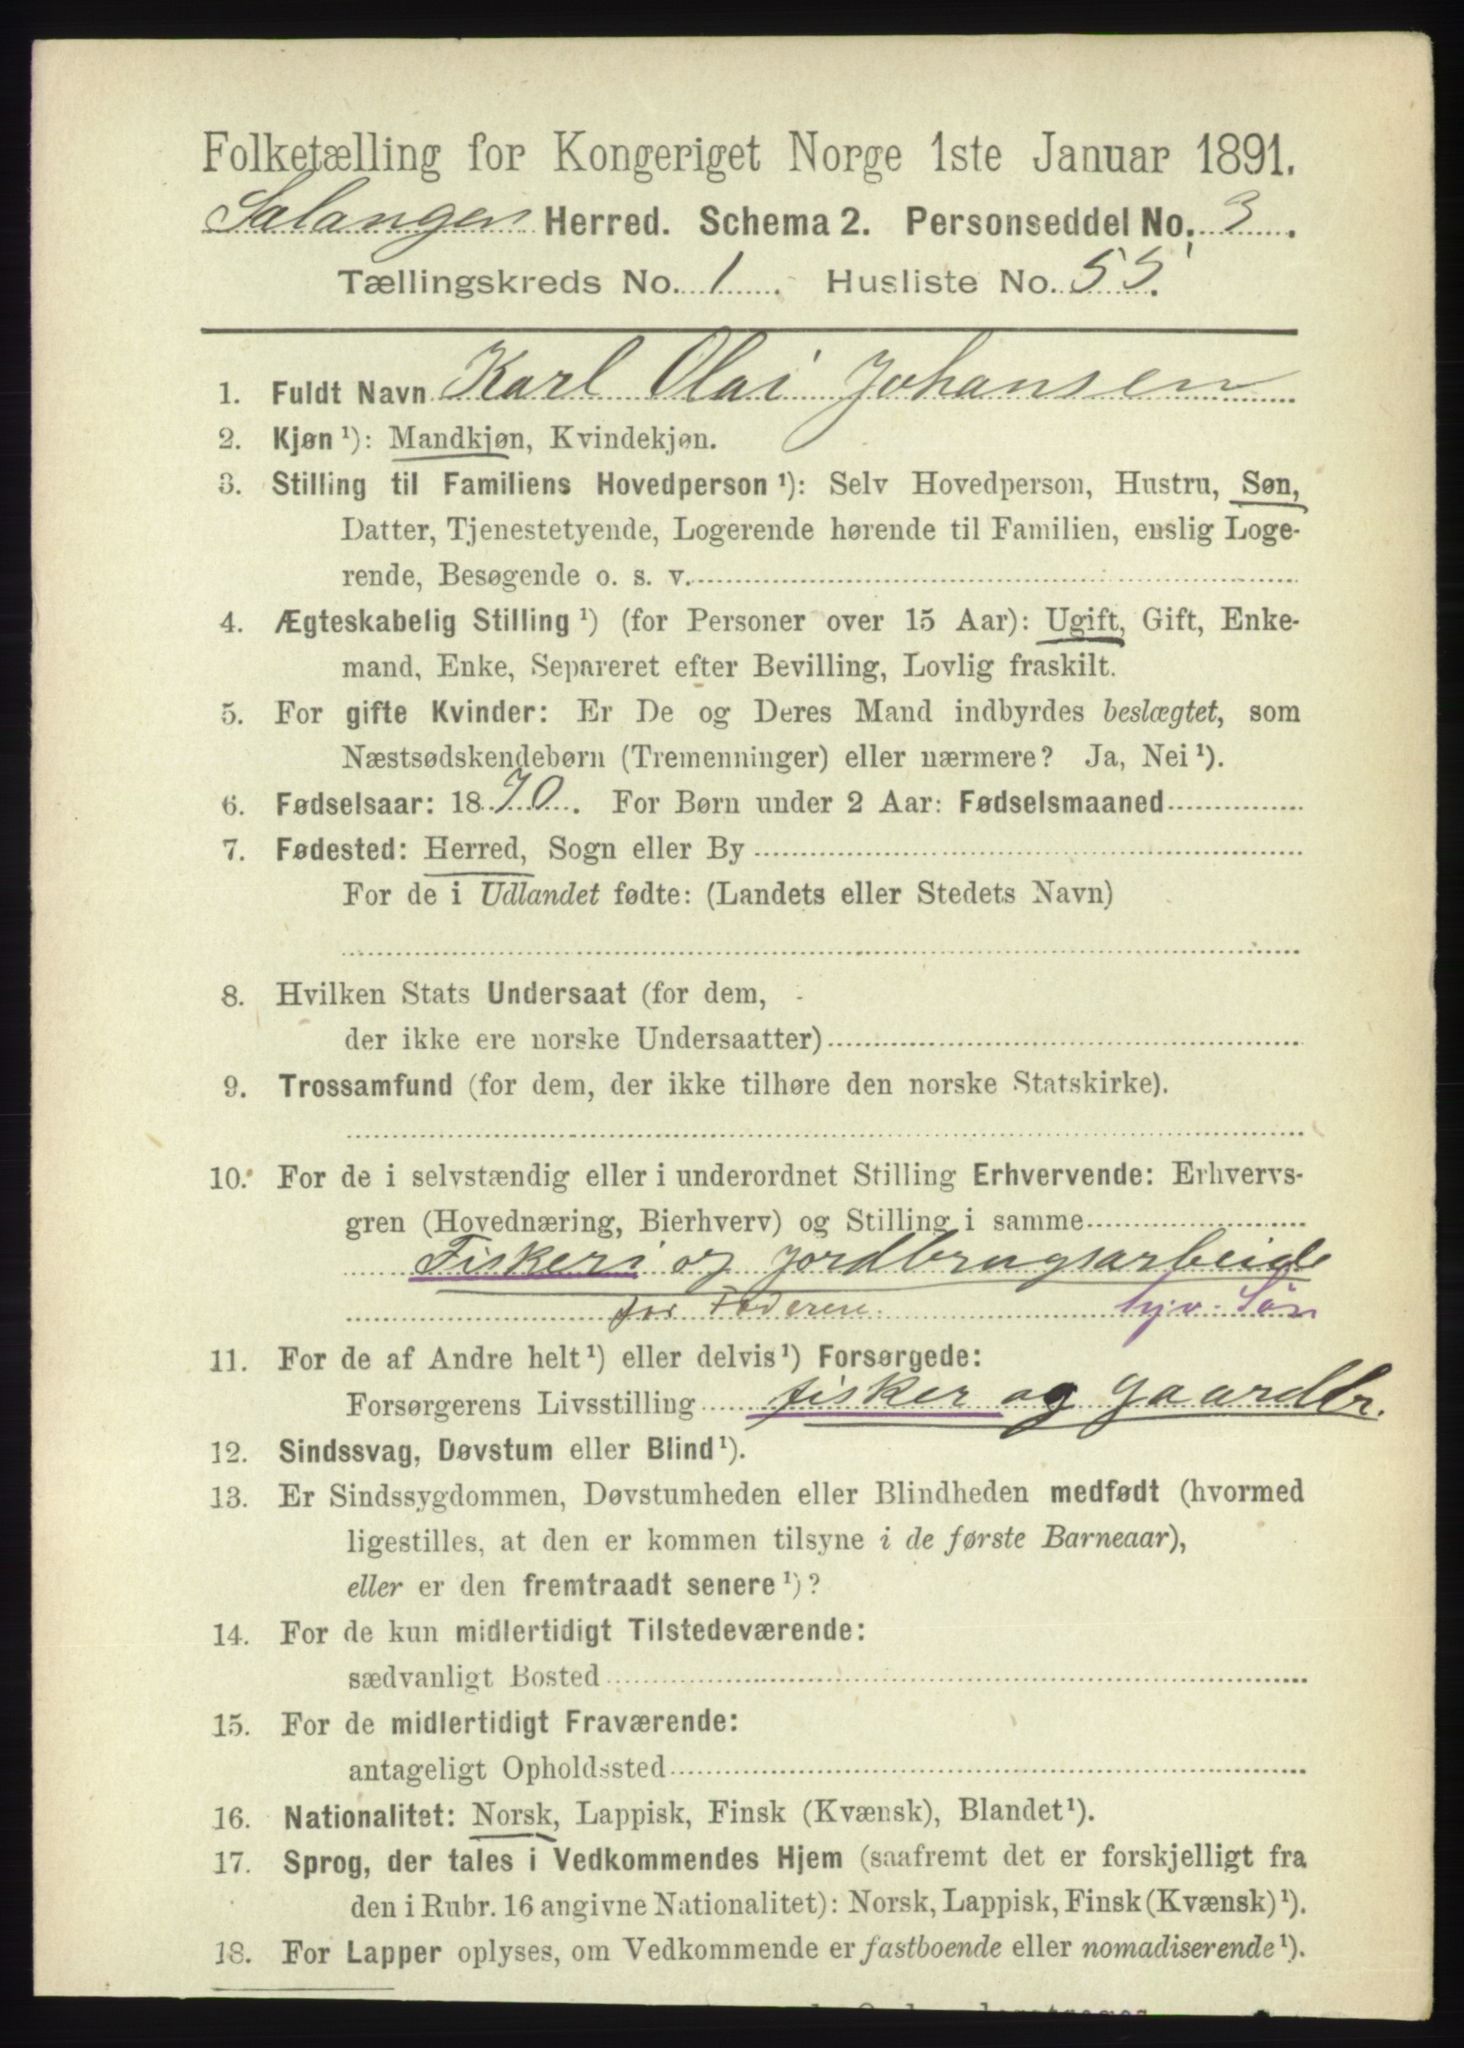 Folketælling for Kongeriget Norge 1ste Januar 1891.
Salangen Herred. Schema 2. Personseddel No. 3.
Tællingskreds No. 1. Husliste No. 55.
1. Fuldt Navn Karl Olai Johansen
2. Kjøn ¹): Mandkjøn, Kvindekjøn.
3. Stilling til Familiens Hovedperson ¹): Selv Hovedperson, Hustru, Søn,
Datter, Tjenestetyende, Logerende hørende til Familien, enslig Loge-
rende, Besøgende o. s. v.
4. Ægteskabelig Stilling ¹) (for Personer over 15 Aar): Ugift, Gift, Enke-
mand, Enke, Separeret efter Bevilling, Lovlig fraskilt.
5. For gifte Kvinder: Er De og Deres Mand indbyrdes beslægtet, som
Næstsødskendebørn (Tremenninger) eller nærmere? Ja, Nei ¹).
6. Fødselsaar: 1870. For Børn under 2 Aar: Fødselsmaaned
7. Fødested: Herred, Sogn eller By
For de i Udlandet fødte: (Landets eller Stedets Navn)
8. Hvilken Stats Undersaat (for dem,
der ikke ere norske Undersaatter)
9. Trossamfund (for dem, der ikke tilhøre den norske Statskirke).
10. For de i selvstændig eller i underordnet Stilling Erhvervende: Erhvervs-
gren (Hovednæring, Bierhverv) og Stilling i samme
Fiskeri og jordbrugsarbeide
for Faderen. hjv. Søn
11. For de af Andre helt ¹) eller delvis ¹) Forsørgede:
Forsørgerens Livsstilling fisker og gaardbr.
12. Sindssvag, Døvstum eller Blind ¹).
13. Er Sindssygdommen, Døvstumheden eller Blindheden medfødt (hvormed
ligestilles, at den er kommen tilsyne i de første Barneaar),
eller er den fremtraadt senere ¹)?
14. For de kun midlertidigt Tilstedeværende:
sædvanligt Bosted
15. For de midlertidigt Fraværende:
antageligt Opholdssted
16. Nationalitet: Norsk, Lappisk, Finsk (Kvænsk), Blandet ¹).
17. Sprog, der tales i Vedkommendes Hjem (saafremt det er forskjelligt fra
den i Rubr. 16 angivne Nationalitet): Norsk, Lappisk, Finsk (Kvænsk) ¹).
18. For Lapper oplyses, om Vedkommende er fastboende eller nomadiserende ¹).